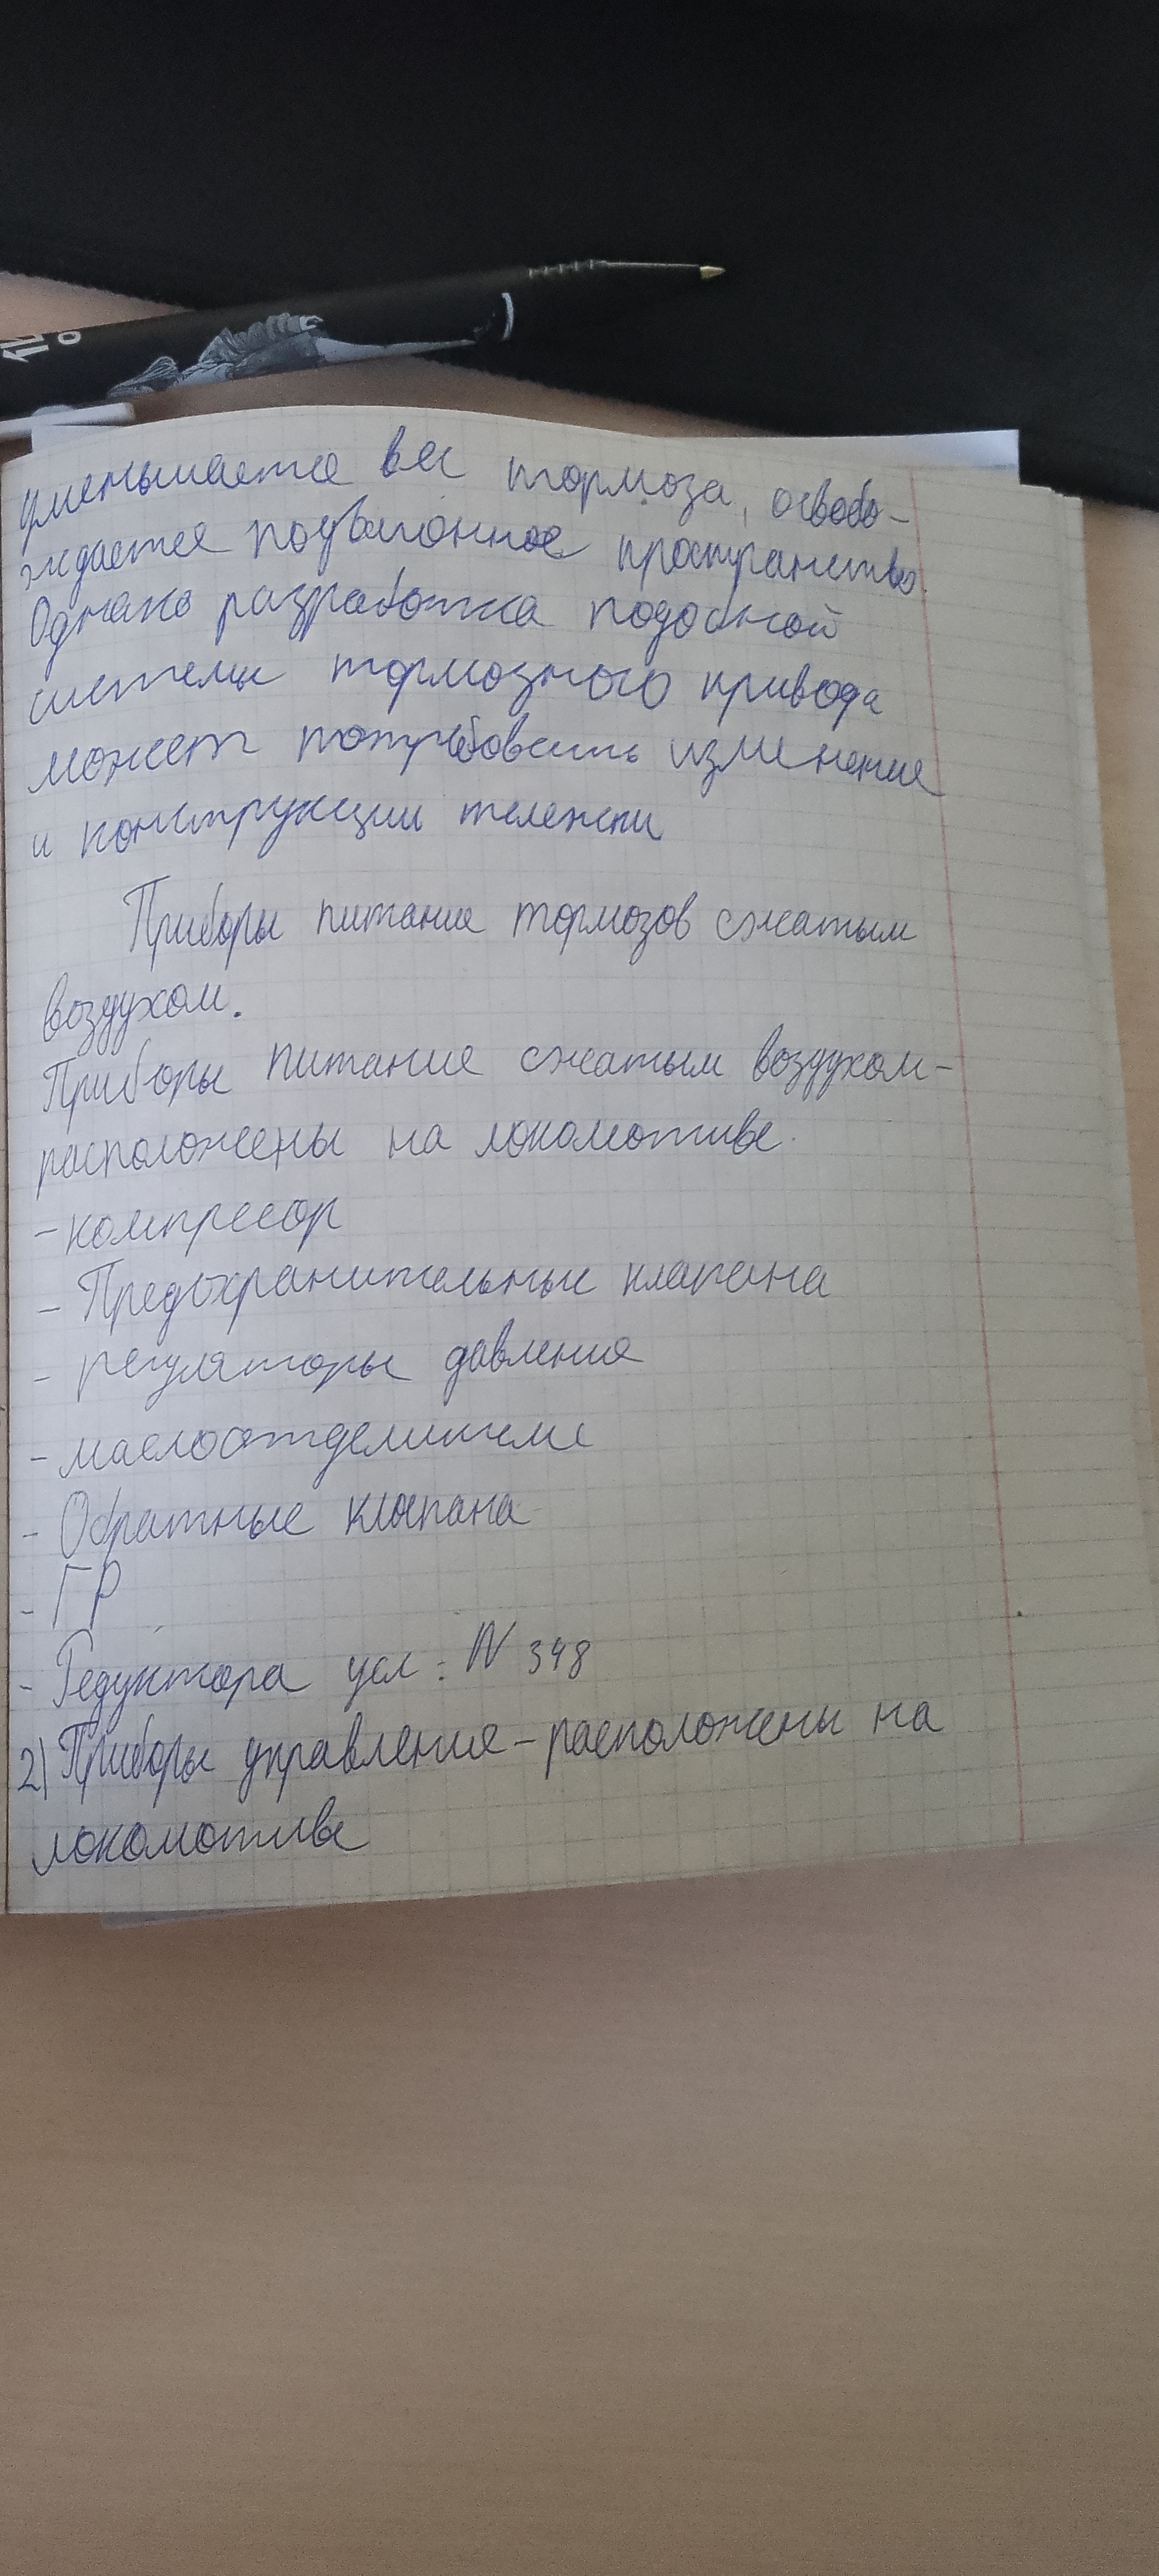 уменьшается вес тормоза, освобо-
ждается подвагонное пространство.
Однако разработка подобной
системы тормозного привода
может потребовать изменение
и конструкции тележки
Приборы питание тормозов сжатым
воздухом.
Приборы питание сжатым воздухом-
расположены на локомотиве.
- компресор
- Предохранительные клапана
- регуляторы давления
- маслоотделители
- Обратные клапана
- ГР
- Редуктора усл: N 348
2) Приборы управления - расположены на
локомотиве